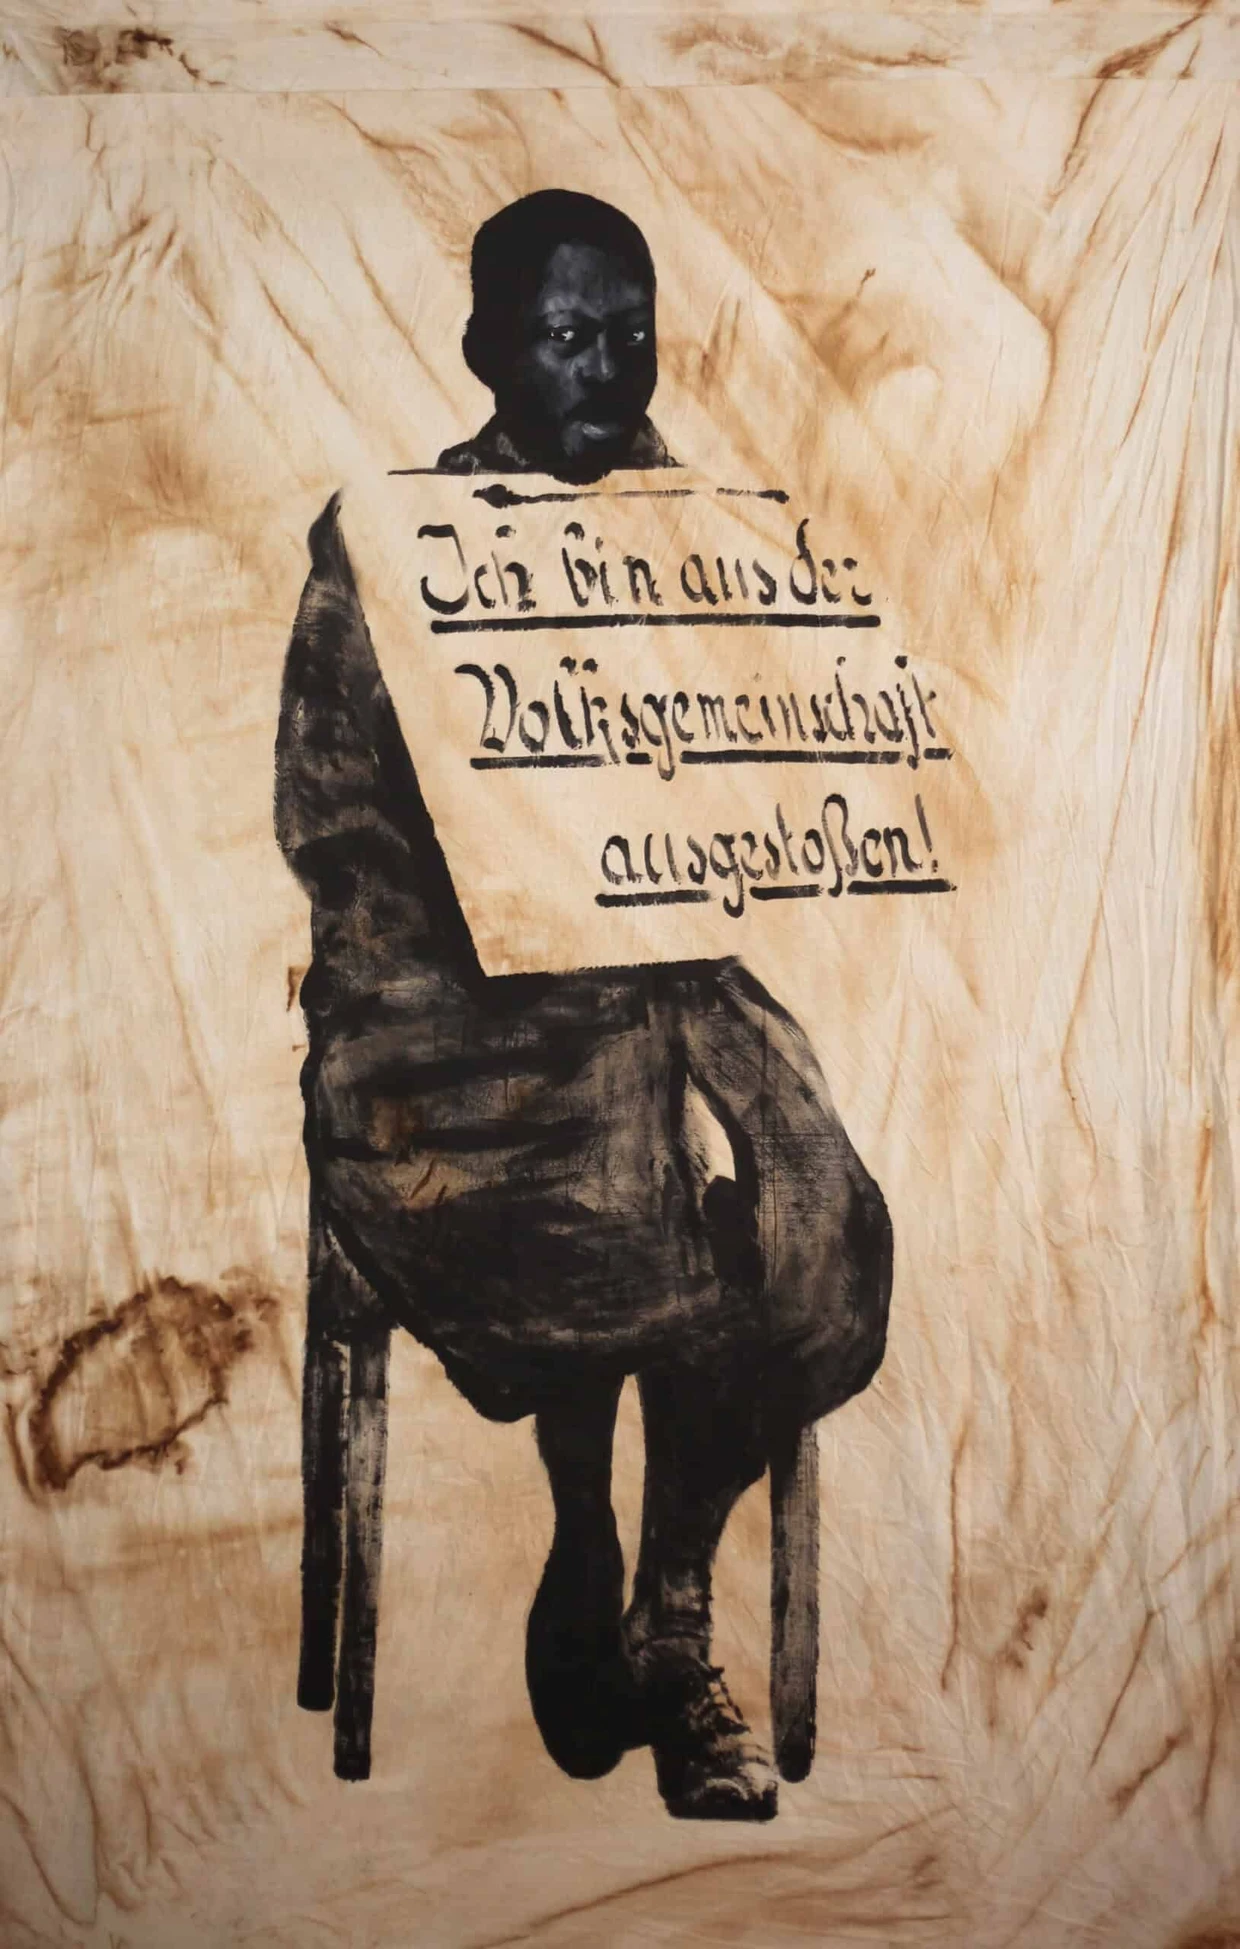 Ich bin aus der
Volksgemeinschaft
ausgestoßen!